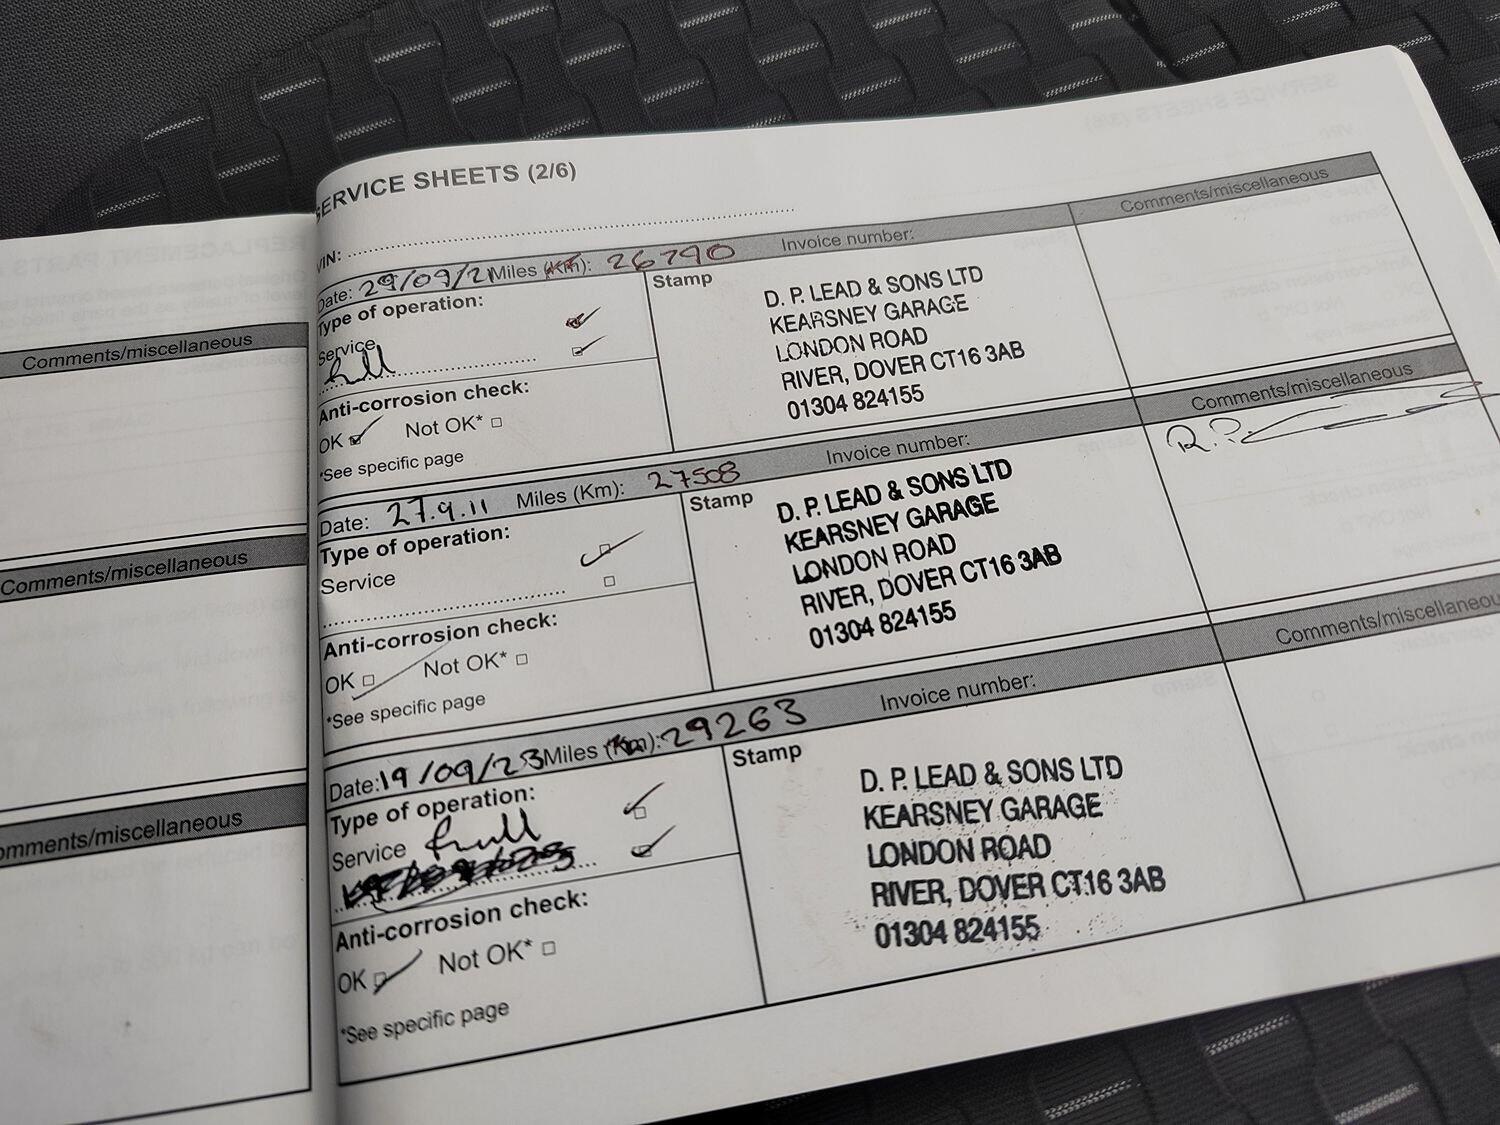 SERVICE SHEETS (2/6)
VIN:
Date: 29/09/21 Miles (Km): 26790 Invoice number: Comments/miscellaneous
Type of operation:
Service
full
Anti-corrosion check:
OK Not OK*
*See specific page
Stamp
D. P. LEAD & SONS LTD
KEARSNEY GARAGE
LONDON ROAD
RIVER, DOVER CT16 3AB
01304 824155
Date: 27.9.11 Miles (Km): 27508 Invoice number: Comments/miscellaneous
Type of operation:
Service
Anti-corrosion check:
OK Not OK*
*See specific page
Stamp
D. P. LEAD & SONS LTD
KEARSNEY GARAGE
LONDON ROAD
RIVER, DOVER CT16 3AB
01304 824155
Date: 19/09/23 Miles (Km): 29263 Invoice number: Comments/miscellaneous
Type of operation:
Service full
Anti-corrosion check:
OK Not OK*
*See specific page
Stamp
D. P. LEAD & SONS LTD
KEARSNEY GARAGE
LONDON ROAD
RIVER, DOVER CT16 3AB
01304 824155
Comments/miscellaneous
Comments/miscellaneous
Comments/miscellaneous